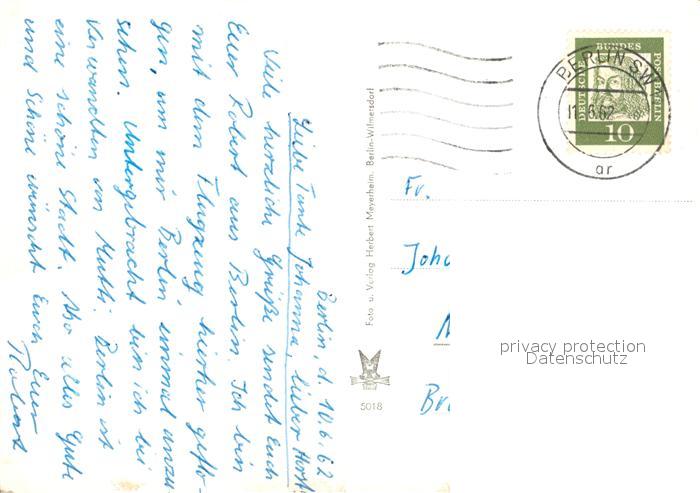 Berlin, d. 10.6.62
Liebe Tante Johanna, lieber Horst
Viele herzliche Grüße sendet Euch
Euer Robert aus Berlin. Ich bin
mit dem Flugzeug hierher geflo-
gen, um mir Berlin einmal anzu-
sehen. Untergebracht bin ich bei
Verwandten von Mutti. Berlin ist
eine schöne Stadt. Also alles Gute
und Schöne wünscht Euch Euer
Robert
Foto u. Verlag Herbert Meyerheim, Berlin-Wilmersdorf
5018
DEUTSCHE BUNDESPOST BERLIN
10
BERLIN SW
11.6.62
ar
Fr.
Joha
N
Br
privacy protection
Datenschutz